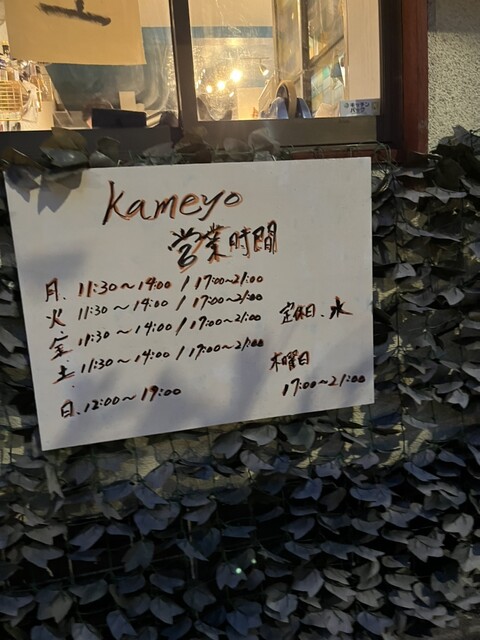 kameyo
営業時間
月. 11:30～14:00 / 17:00～21:00
火 11:30～14:00 / 17:00～21:00
金 11:30～14:00 / 17:00～21:00
土. 11:30～14:00 / 17:00～21:00
日. 12:00～19:00
定休日. 水
木曜日
17:00～21:00